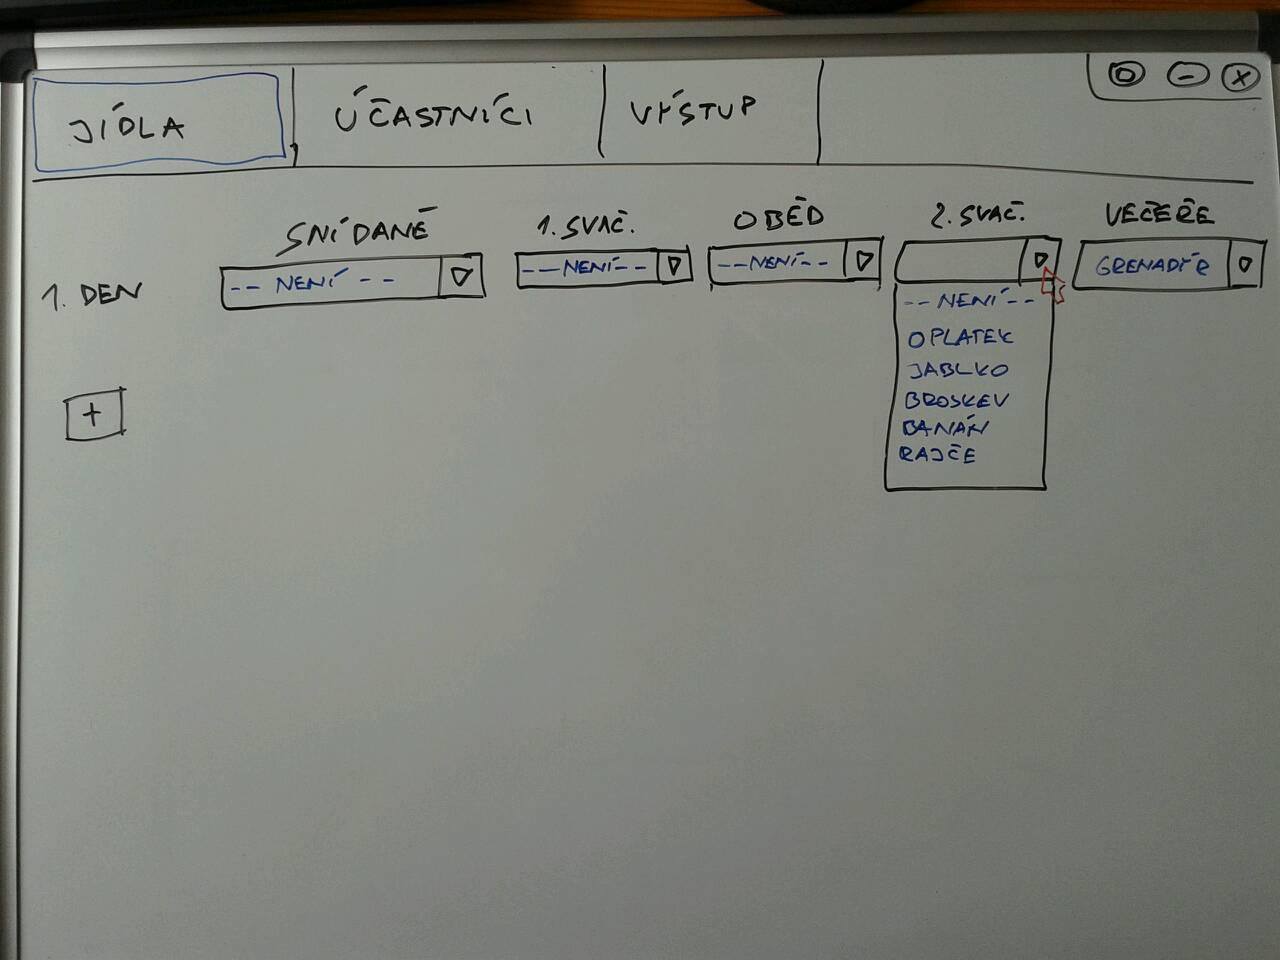 JÍDLA ÚČASTNÍCI VÝSTUP
SNÍDANĚ 1. SVAČ. OBĚD 2. SVAČ. VEČEŘE
1. DEN -- NENÍ -- ---NENÍ-- --NENÍ-- GRENADÍR
--NENÍ--
OPLATEK
JABLKO
BROSKEV
BANÁN
RAJČE
+